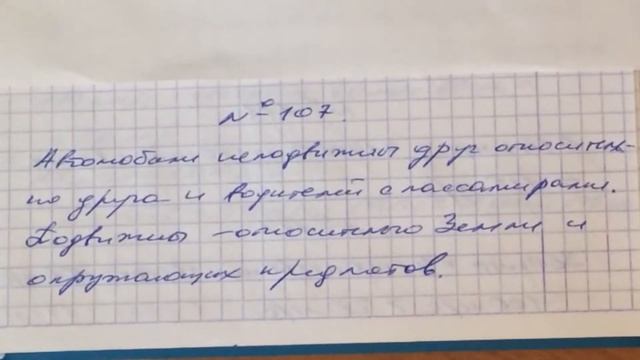 № 107.
Автомобили неподвижны друг относитель-
но друга и водителей с пассажирами.
Подвижны - относительно Земли и
окружающих предметов.